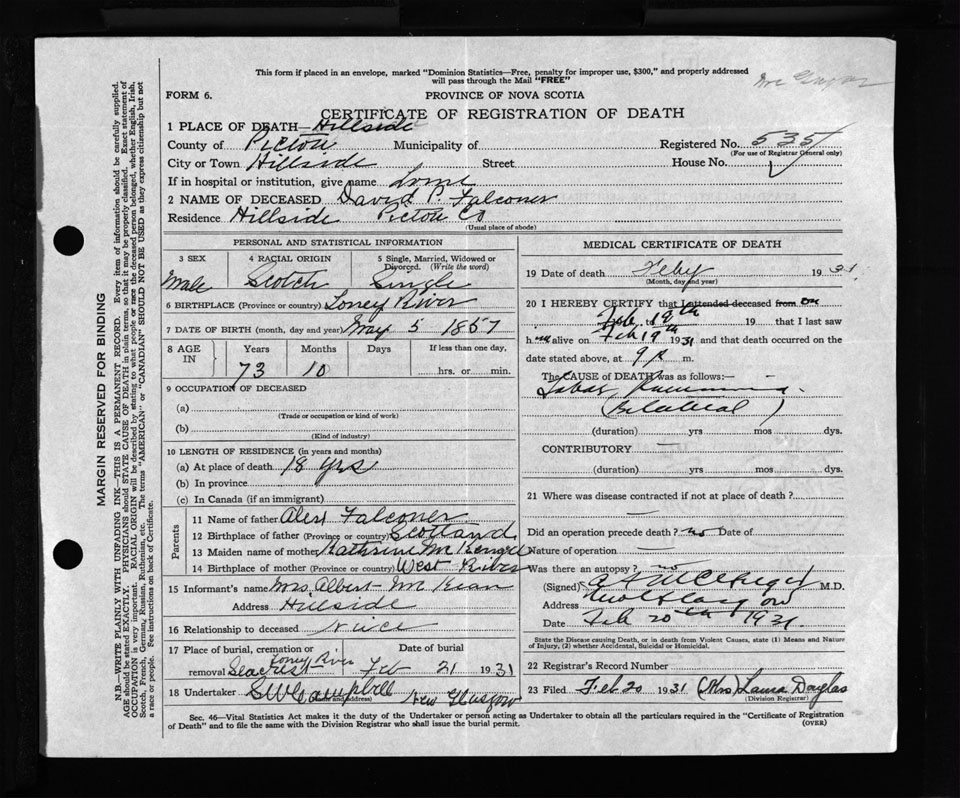 This form if placed in an envelope, marked "Dominion Statistics—Free, penalty for improper use, $300," and properly addressed
will pass through the Mail "FREE"
FORM 6.
PROVINCE OF NOVA SCOTIA
CERTIFICATE OF REGISTRATION OF DEATH
1 PLACE OF DEATH—Hillside
County of Pictou Municipality of Registered No. 535
(For use of Registrar General only)
City or Town Hillside Street House No.
If in hospital or institution, give name
2 NAME OF DECEASED David P. Falconer
Residence Hillside Pictou Co
(Usual place of abode)
PERSONAL AND STATISTICAL INFORMATION
3 SEX 4 RACIAL ORIGIN 5 Single, Married, Widowed or
Divorced. (Write the word)
Male Scotch Single
6 BIRTHPLACE (Province or country) Toney River
7 DATE OF BIRTH (month, day and year) May 5 1857
8 AGE IN Years Months Days If less than one day,
73 10 hrs. or min.
9 OCCUPATION OF DECEASED
(a)
(Trade or occupation or kind of work)
(b)
(Kind of industry)
10 LENGTH OF RESIDENCE (in years and months)
(a) At place of death 18 yrs
(b) In province
(c) In Canada (if an immigrant)
Parents
11 Name of father Alex Falconer
12 Birthplace of father (Province or country) Scotland
13 Maiden name of mother
14 Birthplace of mother (Province or country) West River
15 Informant's name Mrs Albert
Address Hillside
16 Relationship to deceased Niece
17 Place of burial, cremation or Date of burial
Toney River
removal Seacrest Feb 21 1931
18 Undertaker S W Campbell New Glasgow
(Name and address)
MEDICAL CERTIFICATE OF DEATH
19 Date of death Feby 1931
(Month, day and year)
20 I HEREBY CERTIFY that I attended deceased from on
Feb to 18th 19 that I last saw
h alive on Feb 19th 1931 and that death occurred on the
date stated above, at 9 p. m.
The CAUSE of DEATH was as follows:—
Lobar
(Bilateral)
(duration) yrs mos dys.
CONTRIBUTORY —
(duration) yrs mos dys.
21 Where was disease contracted if not at place of death?
—
Did an operation precede death? no Date of
Nature of operation —
Was there an autopsy? no
(Signed) M.D.
Address New Glasgow
Date Feb 20th 1931
State the Disease causing Death, or in death from Violent Causes, state (1) Means and Nature
of Injury, (2) whether Accidental, Suicidal or Homicidal.
22 Registrar's Record Number
23 Filed Feb 20 1931 (Mrs) Laura Douglas
(Division Registrar)
Sec. 46—Vital Statistics Act makes it the duty of the Undertaker or person acting as Undertaker to obtain all the particulars required in the "Certificate of Registration
of Death" and to file the same with the Division Registrar who shall issue the burial permit.
(OVER)
MARGIN RESERVED FOR BINDING
N.B.—WRITE PLAINLY WITH UNFADING INK—THIS IS A PERMANENT RECORD. Every item of information should be carefully supplied.
AGE should be stated EXACTLY. PHYSICIANS should STATE CAUSE OF DEATH in plain terms, so that it may be properly classified. Exact statement of
OCCUPATION is very important. RACIAL ORIGIN will be described by stating to what people or race the deceased person belonged, whether English, Irish,
Scotch, French, German, Russian, Ruthenian, etc. The terms "AMERICAN" or "CANADIAN" SHOULD NOT BE USED as they express citizenship but not
a race or people. See instructions on back of Certificate.